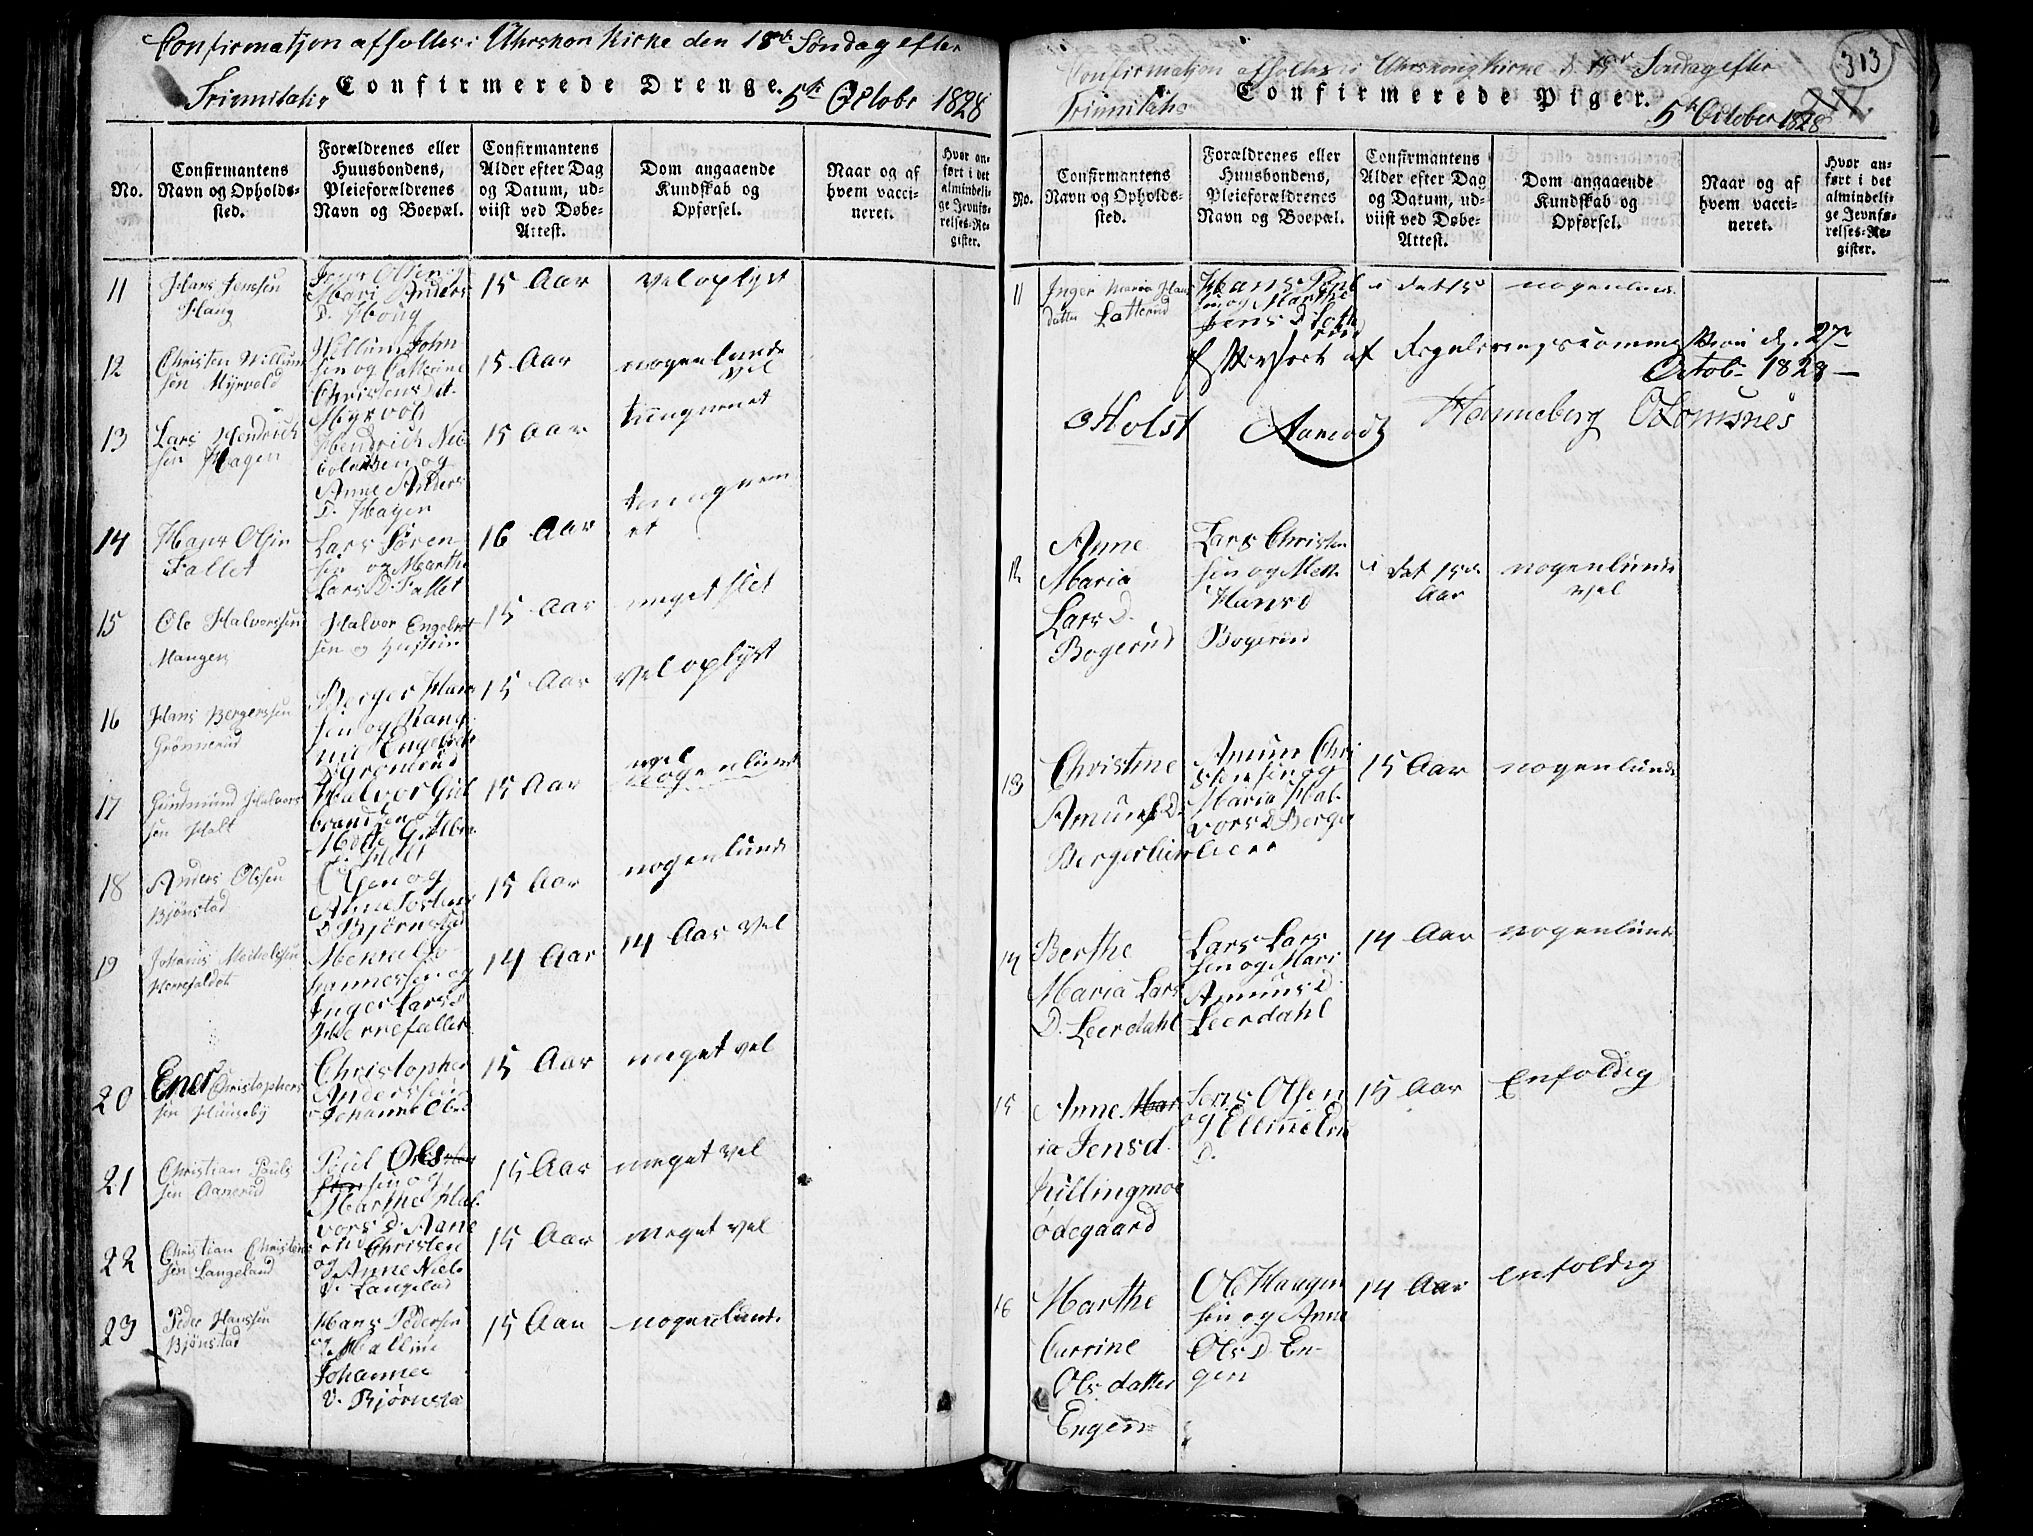 Confirmatjon afholtes i Uhrskou Kirke den 18de Søndag efter
Trinnitatis
Confirmerede Drenge.
5te Octobr 1828
No.
Confirmantens
Navn og Opholds-
sted.
Forældrenes eller
Huusbondens,
Pleieforældrenes
Navn og Boepæl.
Confirmantens
Alder efter Dag
og Datum, ud-
viist ved Døbe-
Attest.
Dom angaaende
Kundskab og
Opførsel.
Naar og af
hvem vacci-
neret.
Hvor an-
ført i det
almindeli-
ge Jevnfø-
relses-Re-
gister.
11
Hans Jensen
Haug
Jens Olsen og
Mari Anders
D. Houg
15 Aar
vel oplyst
12
Christen Willum
sen Myrvold
Willum John
sen og Catterine
Christens Dat.
Myrvold
15 Aar
nogenlunde
vel
13
Lars Hendrich
sen Hagen
Hendrich Nic
colaisen og
Anne Anders
D. Hagen
15 Aar
tungnemet
14
Hans Olsen
Fallet
Lars Søren
sen og Marthe
Lars D. Fallet
16 Aar
tungnem
et
15
Ole Halvorssen
Mangen
Halvor Engebret
sen og Hustru
15 Aar
meget slet
16
Hans Bergerssen
Grønnerud
Berger Hans
sen og Rang
nil Engebrets
D. Grønerud
15 Aar
vel oplyst
17
Gudmund Halvors
sen Holt
Halvor Gul
brandsen og
Mette Gulbr.
D. Holt
15 Aar
vel
nogenlunde
18
Anders Olssen
Bjønstad
Olsen og
Anne Tostens
D. Bjørnstad
15 Aar
nogenlunde
19
Johanis Michelssen
Hernefaldet
Mekkel Jo
hannessen og
Inger Lars D
Hernefallet
14 Aar
14 Aar vel
20
Ener Christophers
sen Huuneby
Christopher
Anderssen
Johanne Ols D
15 Aar
meget vel
21
Christian Pouls
sen Aanerud
Poul Ols
sen og
Marthe Hal
vors D. Aane
rud
15 Aar
meget vel
22
Christian Christens
sen Langeland
Christen
og Anne Niels
D. Langelad
15 Aar
meget vel
23
Peder Hanssen
Bjønstad
Hans Pedersen
og Malline
Johannes
D. Bjørnsta
15 Aar
nogenlunde
Confirmatjon afholtes i Uhrskoug Kirke d. 18de Søndag efter
Trinnitatis
Confirmerede Piger.
5te October 1828
313
No.
Confirmantens
Navn og Opholds-
sted.
Forældrenes eller
Huusbondens,
Pleieforældrenes
Navn og Boepæl.
Confirmantens
Alder efter Dag
og Datum, ud-
viist ved Døbe-
Attest.
Dom angaaende
Kundskab og
Opførsel.
Naar og af
hvem vacci-
neret.
Hvor an-
ført i det
almindeli-
ge Jevnfø-
relses-Re-
gister.
11
Inger Maria Hans
datter Latterud
Hans Poul
sen og Marthe
Jens D. Latte
rud
i det 15
nogenlund
Efterseet af Regulerings Commission d. 27de
Octob. 1828
Holst Hanneberg
12
Anne
Maria
Lars D.
Bogerud
Lars Christen
sen og Mette
Hans D
Bogerud
i det 15de
Aar
nogenlunde
vel
13
Christine
Amuns D.
Bergerlien
Amun Chri
stensen og
Maria Hal
vors D. Berger
lien
15 Aar
nogenlunde
14
Berthe
Maria Lars
D. Leerdahl
Lars Lars
sen og Mari
Amuns D.
Leerdahl
14 Aar
nogenlunde
15
Anne Mar
ia Jens d.
Killingmoe
ødegaard
Jens Olsen
og Elline Eri
D.
15 Aar
Enfoldig
16
Marthe
Currine
Ols datter
Engen
Ole Haagen
sen og Anne
Ols D. En-
gen
14 Aar
enfoldig